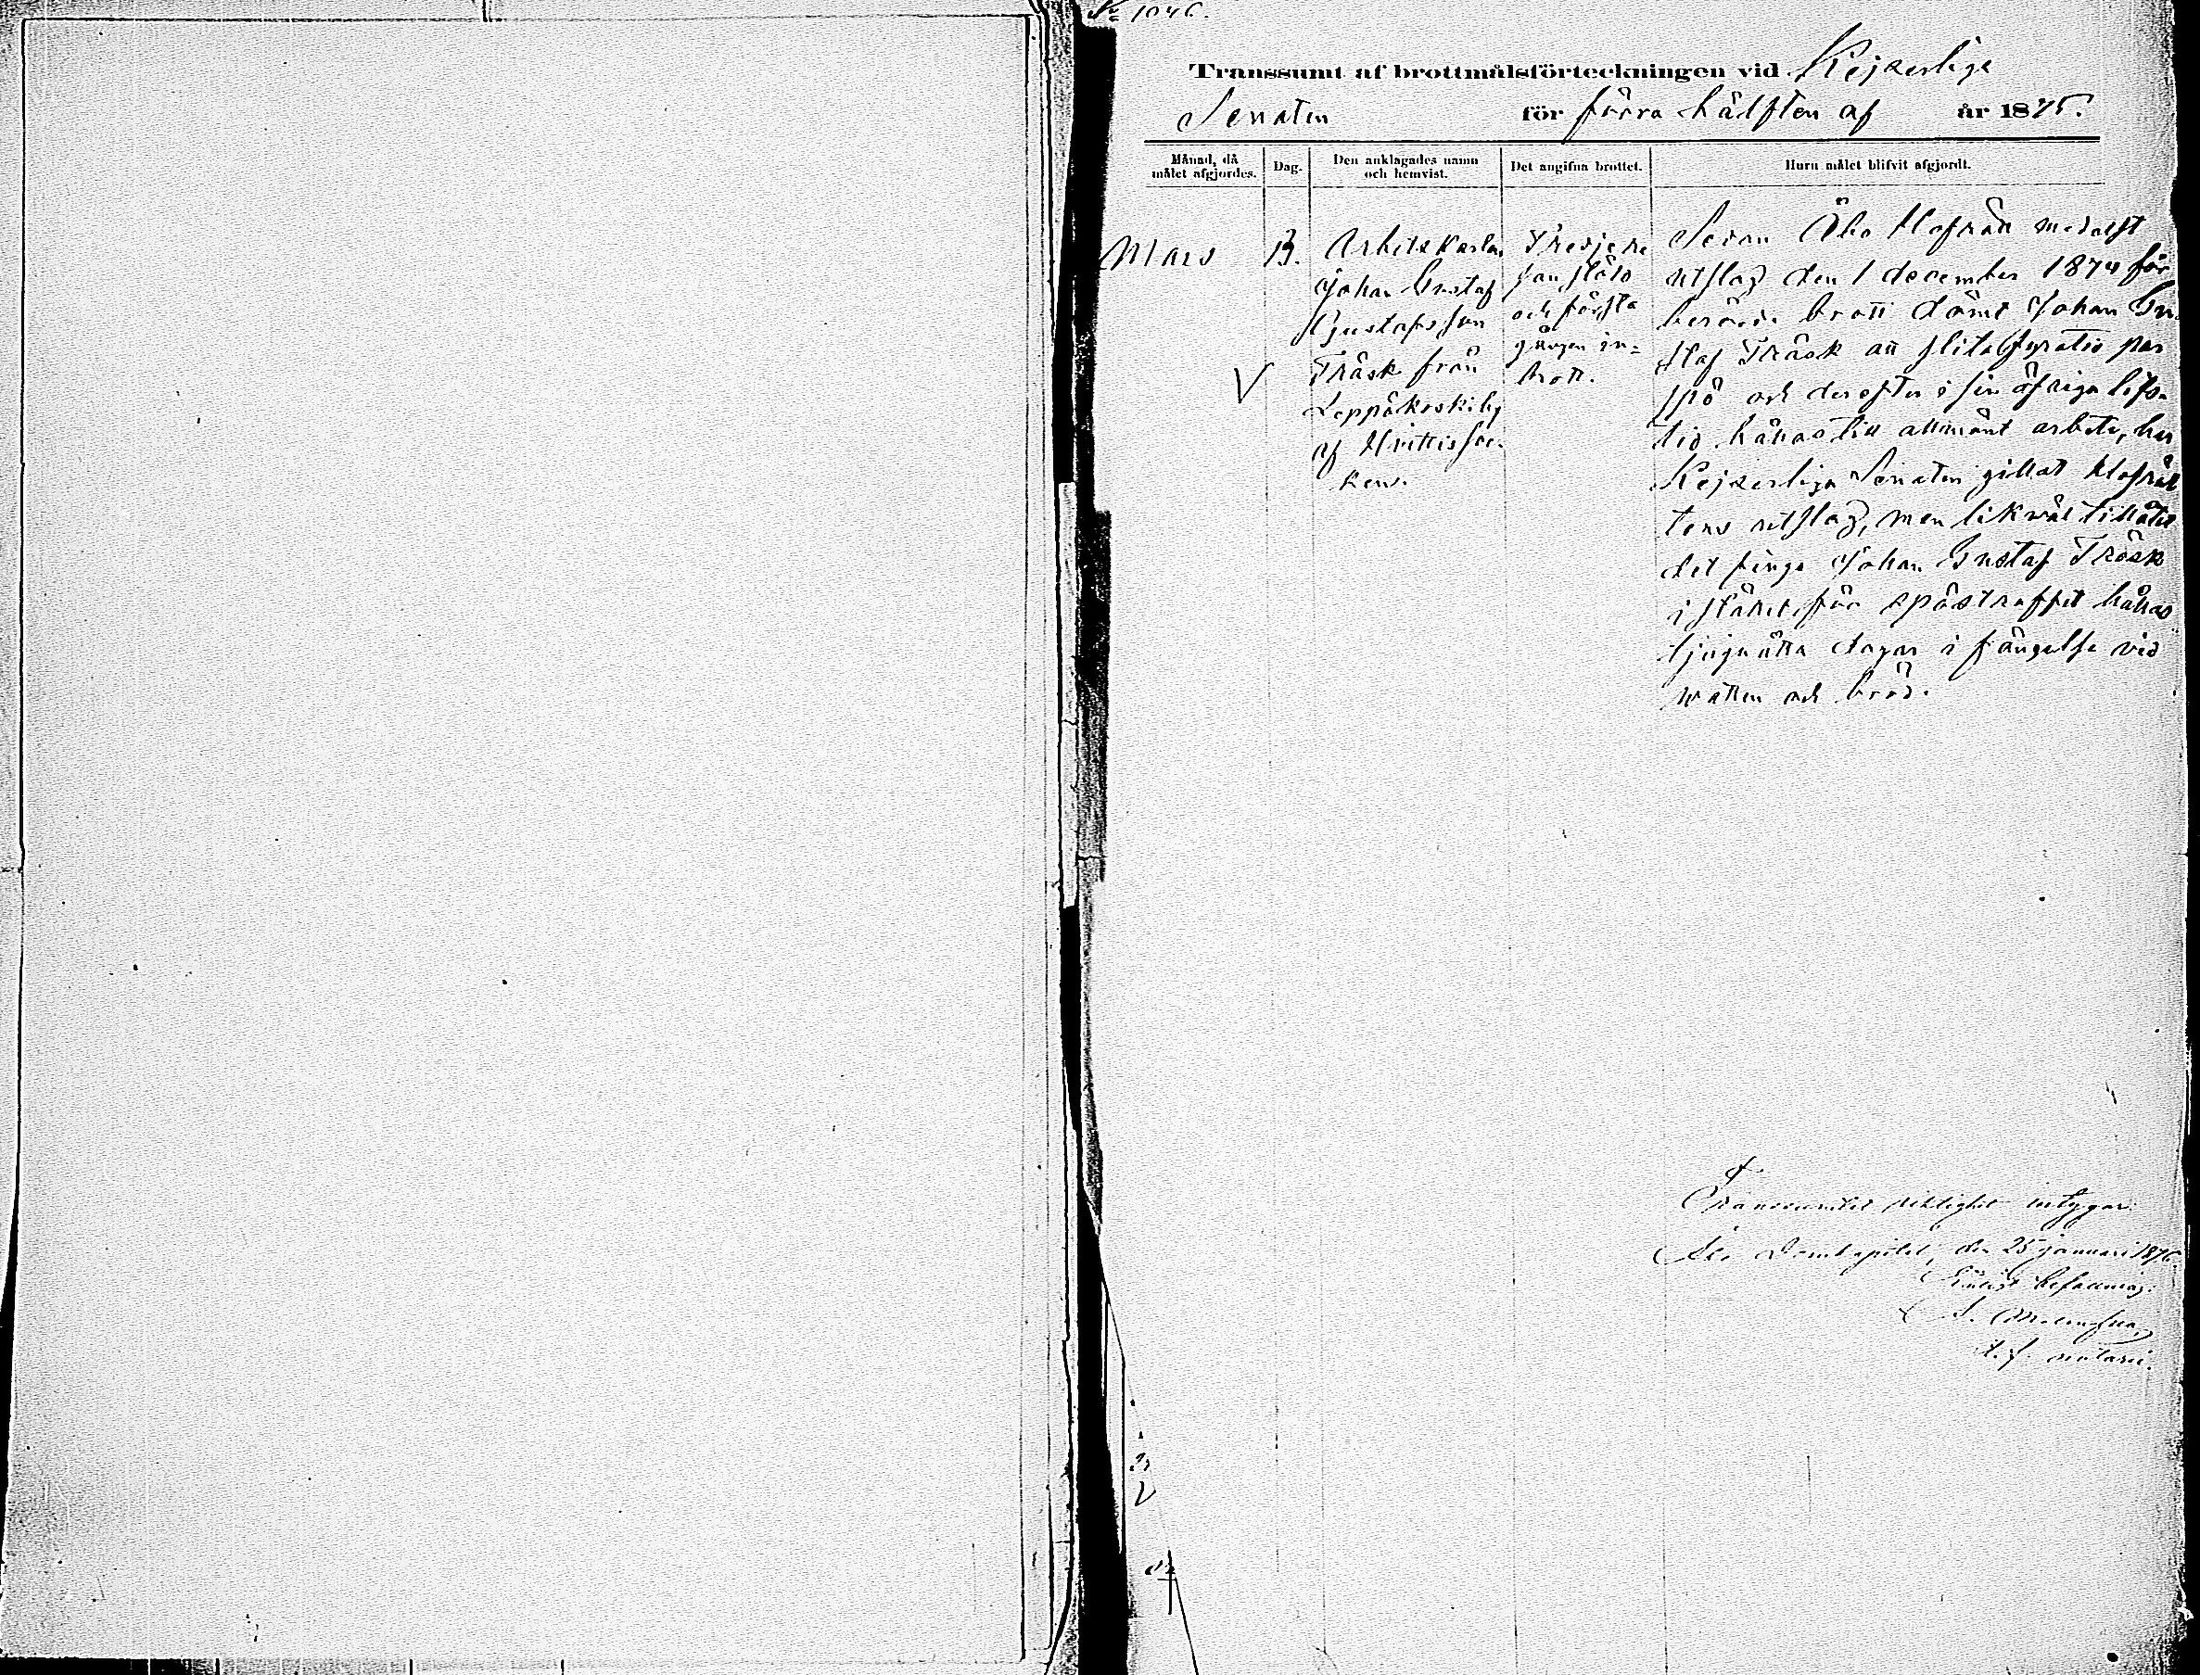 № 1046.
Transsumt af brottmålsförteckningen vid Kejserliga
Senaten för förra hälften af år 1875.
Månad, då målet afgjordes.
Dag.
Den anklagades namn och hemvist.
Det angifna brottet.
Huru målet blifvit afgjordt.
Mars
13.
Arbetskarlen
Johan Gustaf
Gustafsson
Träsk från
Leppäkoskiby
af Hvittis soc-
ken.
V
Tredje re-
san stöld
och första
gången in-
brott.
Sedan Åbo Hofrätt medelst
utslag den 1 december 1874 för
berörde brott dömt Johan Gu-
staf Träsk att slita fyratio par
spö och derefter i sin öfriga lifs-
tid hållas till allmänt arbete, har
Kejserliga Senaten gillat Hofrät-
tens utslag, men likväl tillåtit
det finge Johan Gustaf Träsk
i stället för spöstraffet hållas
tjuguåtta dagar i fängelse vid
watten och bröd.
Transsumtets riktighet intygar:
Åbo Domkapitel, den 25 januari 1876.
Enligt befallning:
t. f. notarie.